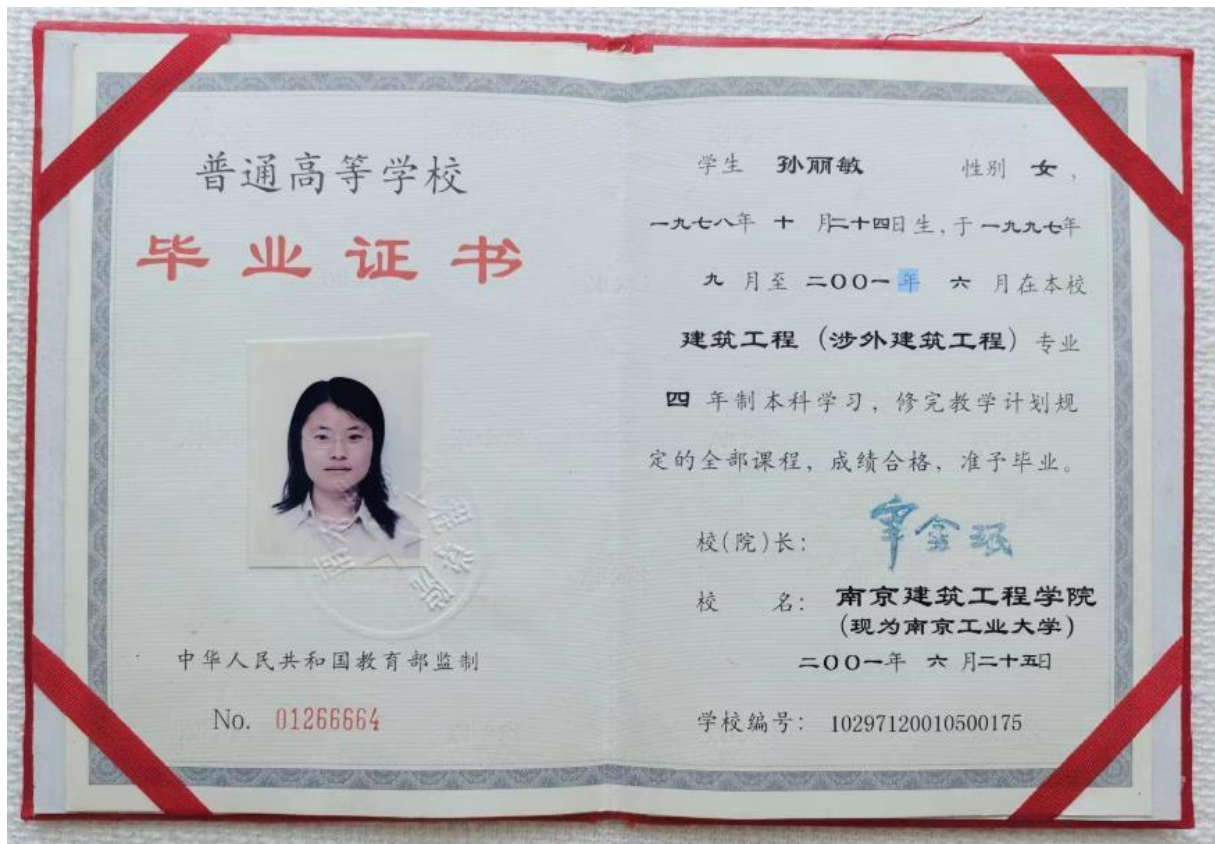 普通高等学校
毕业证书
中华人民共和国教育部监制
No. 01266664
学生 孙丽敏 性别 女,
一九七八年 十 月二十四日生,于一九九七年
九 月至 二〇〇一年 六 月在本校
建筑工程(涉外建筑工程)专业
四 年制本科学习,修完教学计划规
定的全部课程,成绩合格,准予毕业。
校(院)长:
校 名: 南京建筑工程学院
(现为南京工业大学)
二〇〇一年 六 月二十五日
学校编号: 10297120010500175